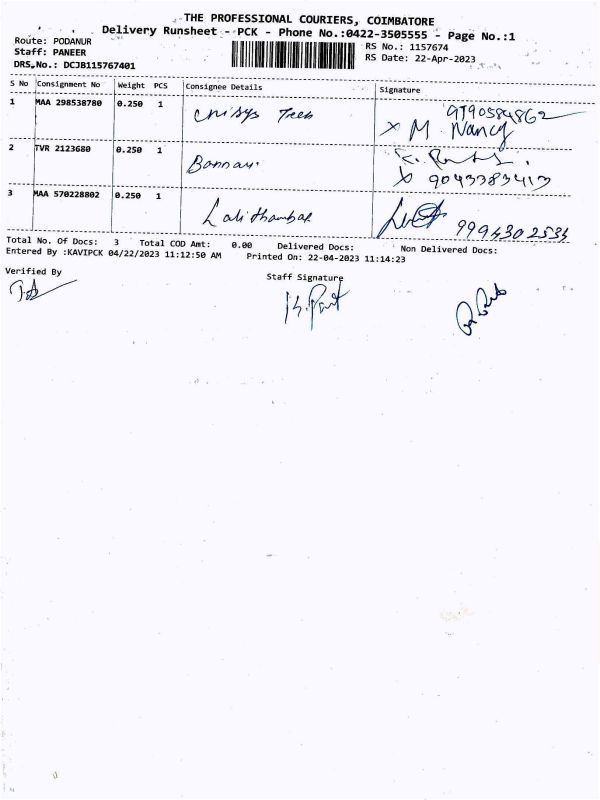 THE PROFESSIONAL COURIERS, COIMBATORE
Delivery Runsheet - PCK - Phone No.:0422-3505555 - Page No.:1
Route: PODANUR
RS No.: 1157674
Staff: PANEER
RS Date: 22-Apr-2023
DRS,No.: DCJB115767401
S No Consignment No Weight PCS Consignee Details Signature
1 MAA 298538780 0.250 1
X M. Nancy
2 TVR 2123680 0.250 1 Bannari
X 9043383413
3 MAA 570228802 0.250 1 Lalithambal
9994302534
Total No. Of Docs: 3 Total COD Amt: 0.00 Delivered Docs: Non Delivered Docs:
Entered By :KAVIPCK 04/22/2023 11:12:50 AM Printed On: 22-04-2023 11:14:23
Verified By
Staff Signature